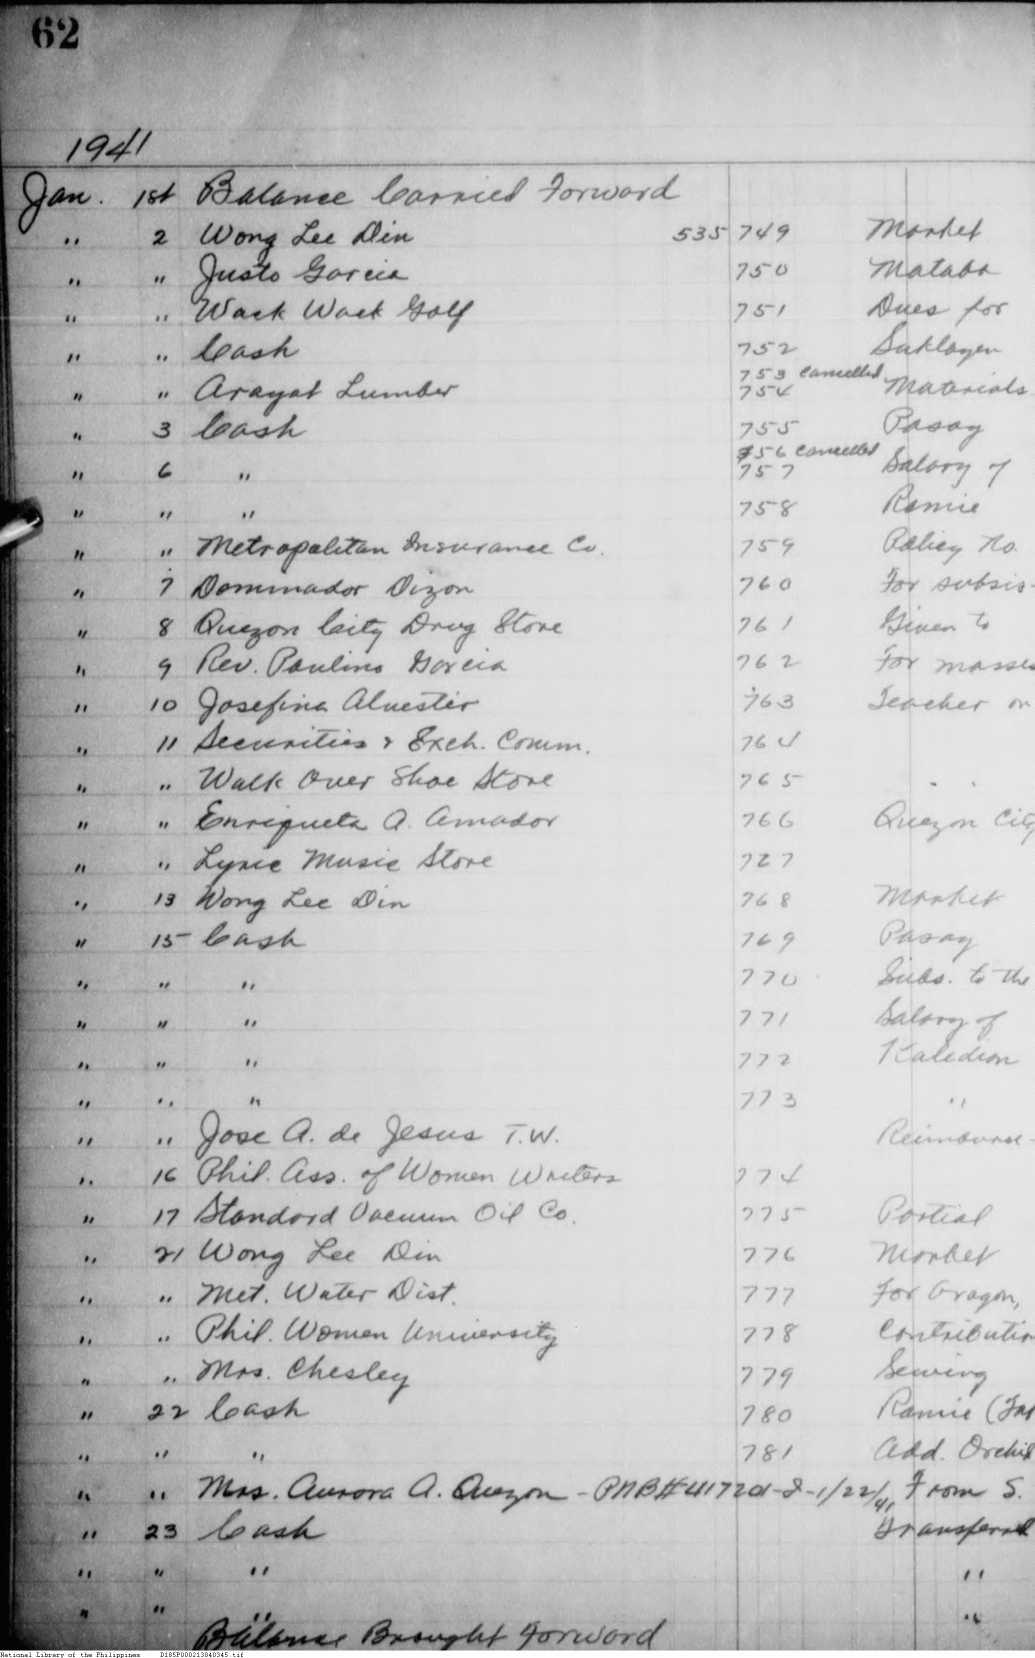 62
1941
Jan. 1st Balance Carried Forward
" 2 Wong Lee Din 535 749 Market
" " Justo Garcia 750 Mataba
" " Wack Wack Golf 751 Dues for
" " Cash 752 Suklayen
753 cancelled
" " Arayat Lumber 754 Materials
" 3 Cash 755 Pasay
756 cancelled
" 6 " 757 Salary of
" " " 758 Ramie
" " Metropolitan Insurance Co. 759 Policy No.
" 7 Dominador Dizon 760 For subsis-
" 8 Quezon City Drug Store 761 Given to
" 9 Rev. Paulino Garcia 762 For masses
" 10 Josefina Alvestir 763 Teacher on
" 11 Securities & Exch. Comm. 764
" " Walk Over Shoe Store 765
" " Enriqueta A. Amador 766 Quezon City
" " Lyric Music Store 727
" 13 Wong Lee Din 768 Market
" 15 Cash 769 Pasay
" " " 770 Subs. to the
" " " 771 Salary of
" " " 772 Kaledion
" " " 773 "
" " Jose A. de Jesus T.W. Reimburse-
" 16 Phil. Ass. of Women Writers 774
" 17 Standard Vacuum Oil Co. 775 Partial
" 21 Wong Lee Din 776 Market
" " Met. Water Dist. 777 For Aragon,
" " Phil. Women University 778 Contribution
" " Mrs. Chesley 779 Sewing
" 22 Cash 780 Ramie (
" " " 781 Add. Orchid
" " Mrs. Aurora A. Quezon - PNB# 41720 1/22/41 From S.
" 23 Cash Transferred
" " " "
" " " "
Balance Brought Forward
National Library of the Philippines D185P000213040345.tif